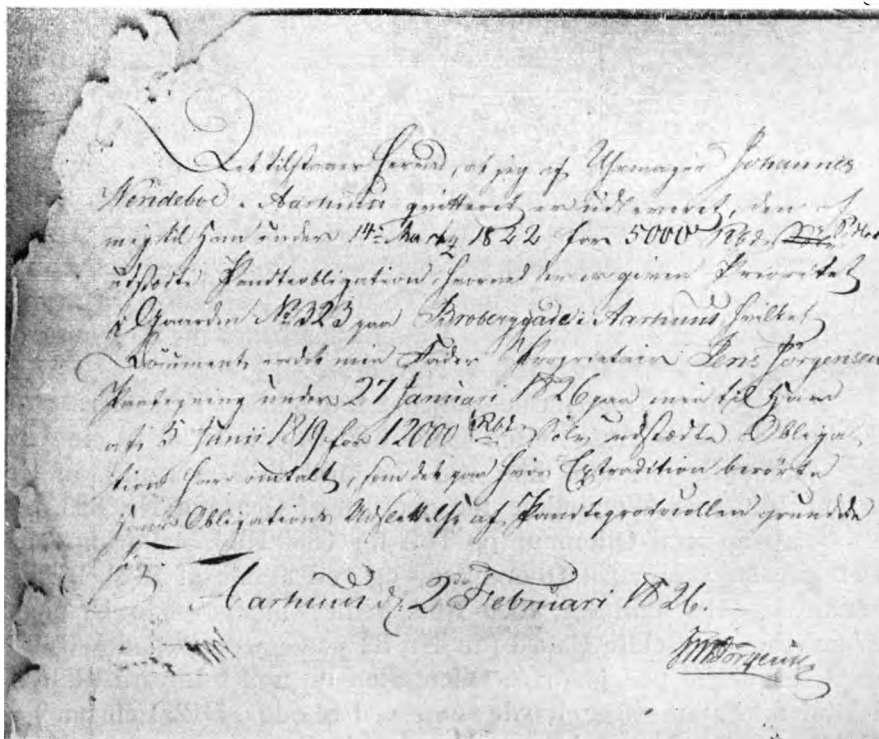 Det tilstaaer herved, at jeg af Uhrmager Johannes
Wendeboe i Aarhuus qvitteret er udleveret, den af
mig til ham under 14de Martz 1822 for 5000 Rbdr
udstædte Pandteobligation, hvorved der er given Prioritet
i Gaarden No 323 paa Broberggade i Aarhuus hvilket
Document, ved min Fader Proprietair Jens Jörgensen
Paategning under 27 Januari 1826 paa min til ham
5 Junii 1819 for 12000 Rbd Sölv udstædte Obliga
tion har omtalt, som det paa hvis Extradition berörte
hans Obligations Udslettelse af Pandteprotocollen grundede
Aarhuus d. 2de Februari 1826.
Jörgensen